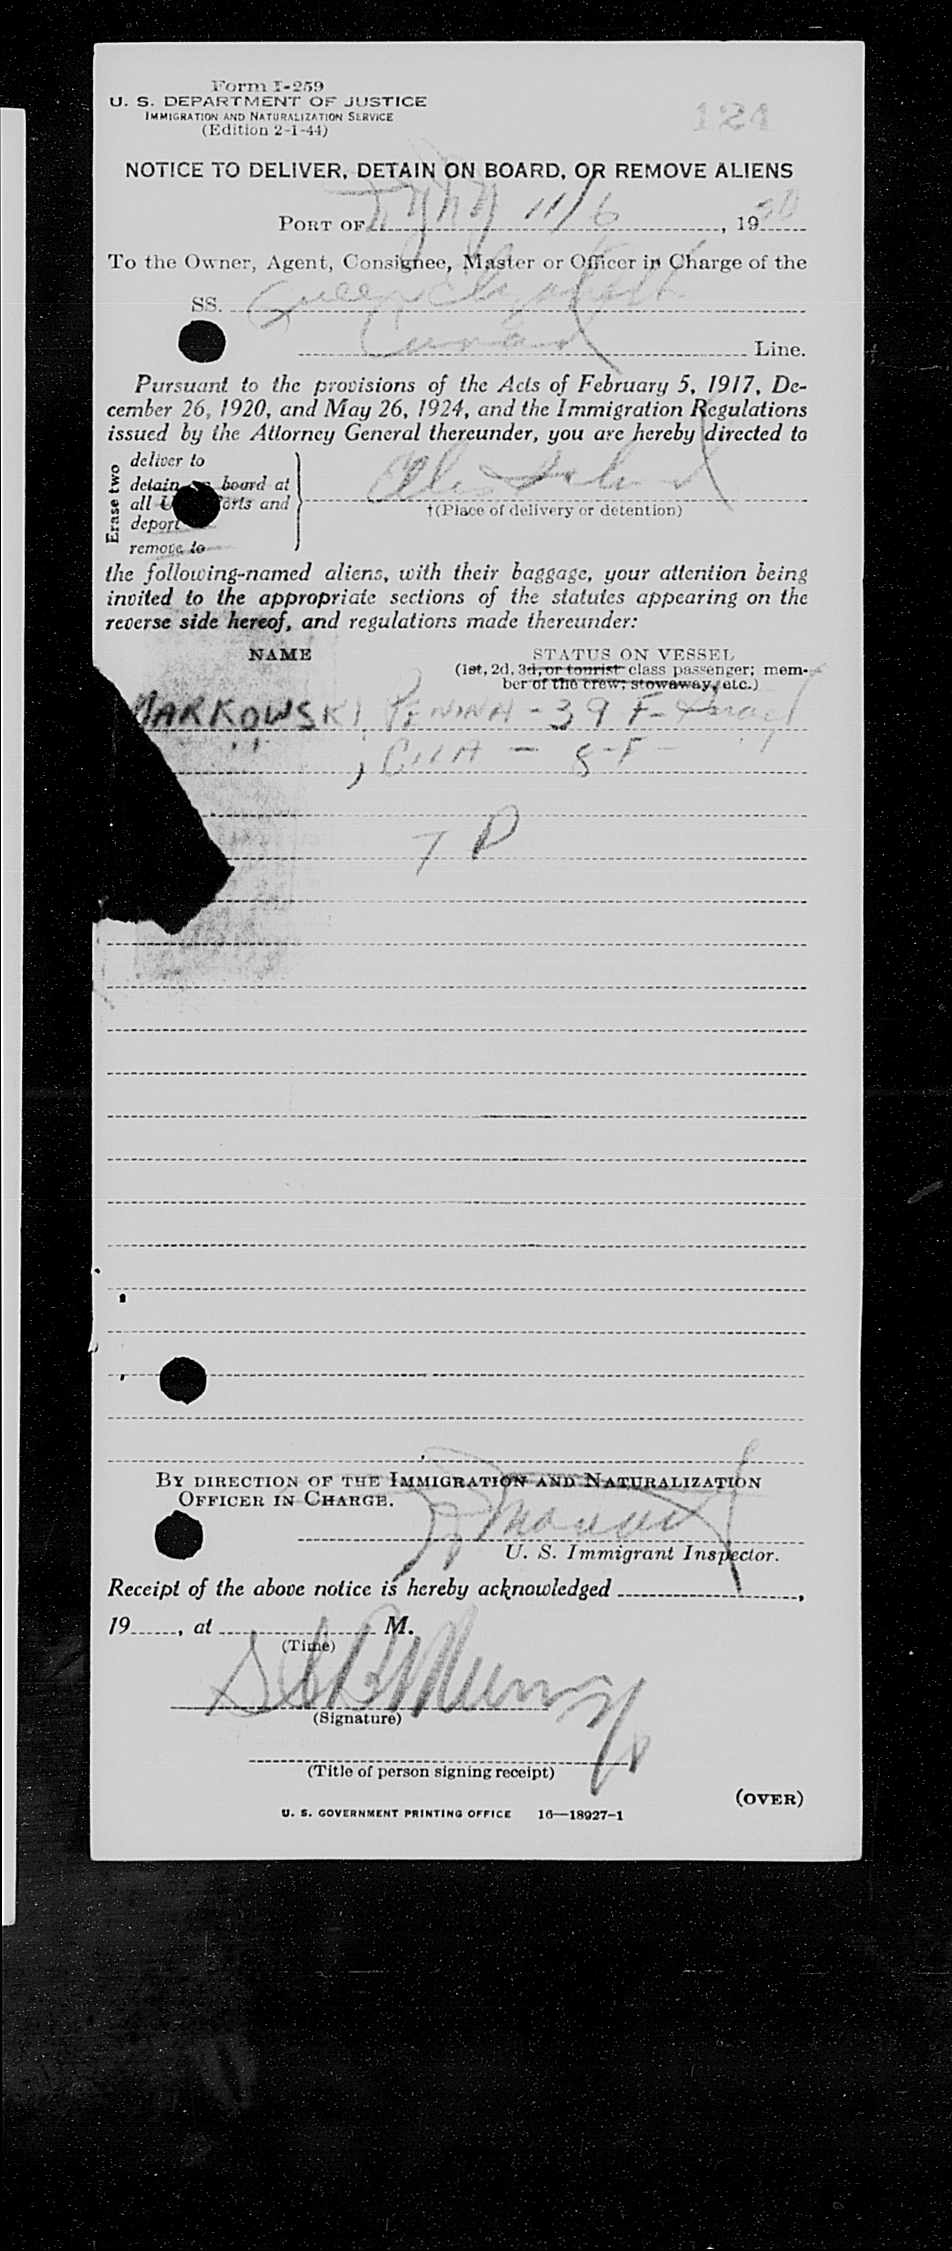 Form I-259
U. S. DEPARTMENT OF JUSTICE
IMMIGRATION AND NATURALIZATION SERVICE
(Edition 2-1-44)
124
NOTICE TO DELIVER, DETAIN ON BOARD, OR REMOVE ALIENS
PORT OF NYNY 11/6, 1950
To the Owner, Agent, Consignee, Master or Officer in Charge of the
SS. Queen Elizabeth
Cunard Line.
Pursuant to the provisions of the Acts of February 5, 1917, De-
cember 26, 1920, and May 26, 1924, and the Immigration Regulations
issued by the Attorney General thereunder, you are hereby directed to
Erase two
deliver to
detain on board at
all U. ports and
deport
remove to
Ellis Island
†(Place of delivery or detention)
the following-named aliens, with their baggage, your attention being
invited to the appropriate sections of the statutes appearing on the
reverse side hereof, and regulations made thereunder:
NAME
STATUS ON VESSEL
(1st, 2d, 3d, or tourist class passenger; mem-
ber of the crew; stowaway, etc.)
MARKOWSKI, PENINA - 39 F- Israel
" , CILLA - 8-F - "
T D
BY DIRECTION OF THE IMMIGRATION AND NATURALIZATION
OFFICER IN CHARGE.
U. S. Immigrant Inspector.
Receipt of the above notice is hereby acknowledged ,
19 , at M.
(Time)
(Signature)
(Title of person signing receipt)
(OVER)
U. S. GOVERNMENT PRINTING OFFICE 16—18927-1